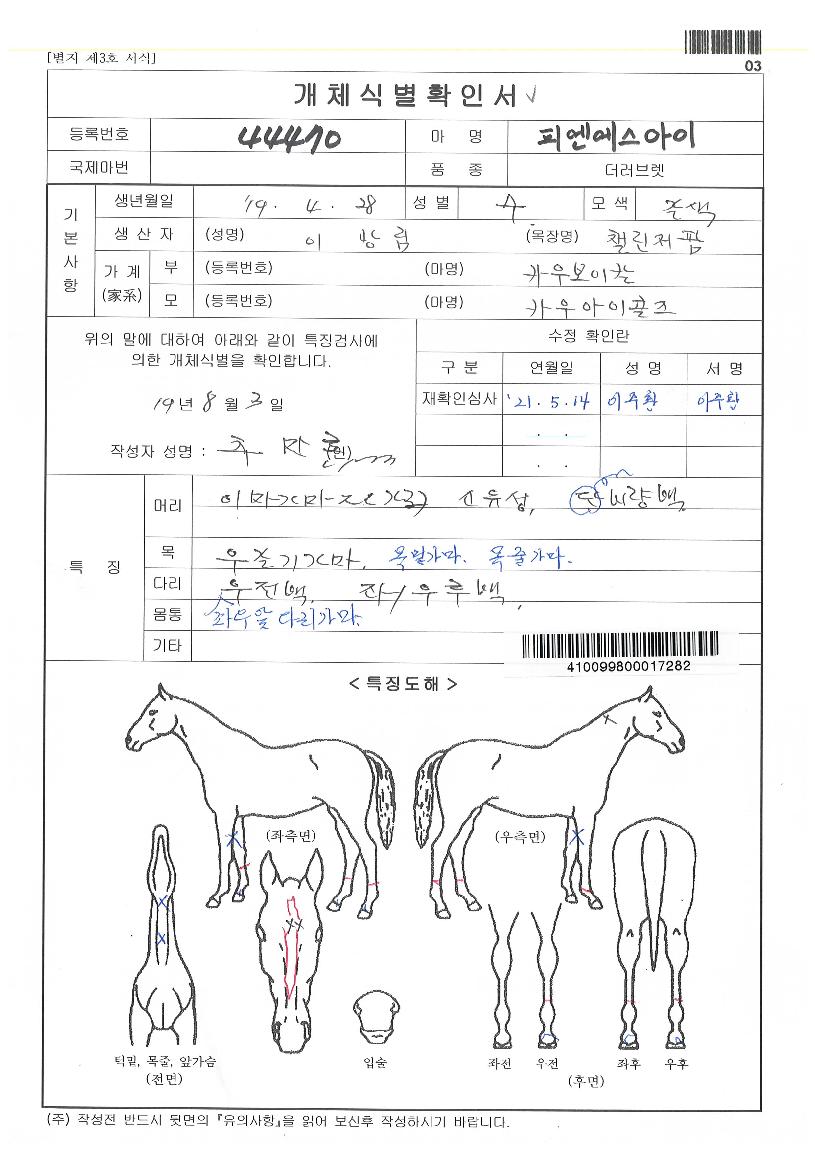 [별지 제3호 서식]
03
개체식별확인서
등록번호 44470 마 명 피엔에스아이
국제마번 품 종 더러브렛
기본사항
생년월일 '19. 4. 28 성별 수 모색
생산자 (성명) 이 광 림 (목장명) 챌린저팜
가계 (家系) 부 (등록번호) (마명) 카우보이칼
모 (등록번호) (마명) 카우아이골즈
위의 말에 대하여 아래와 같이 특징검사에
의한 개체식별을 확인합니다.
19년 8월 3일
작성자 성명 : (인)
수정 확인란
구분 연월일 성명 서명
재확인심사 '21. 5. 14 이주환 이주환
. .
. .
특 징
머리 유성, 비량백,
목 가마, 목밑가마. 목줄가마.
다리 우전백, 좌/우후백,
몸통 좌우앞다리가마.
기타
410099800017282
< 특징도해 >
(좌측면) (우측면)
턱밑, 목줄, 앞가슴
(전면)
입술
좌전 우전 좌후 우후
(후면)
(주) 작성전 반드시 뒷면의 『유의사항』을 읽어 보신후 작성하시기 바랍니다.